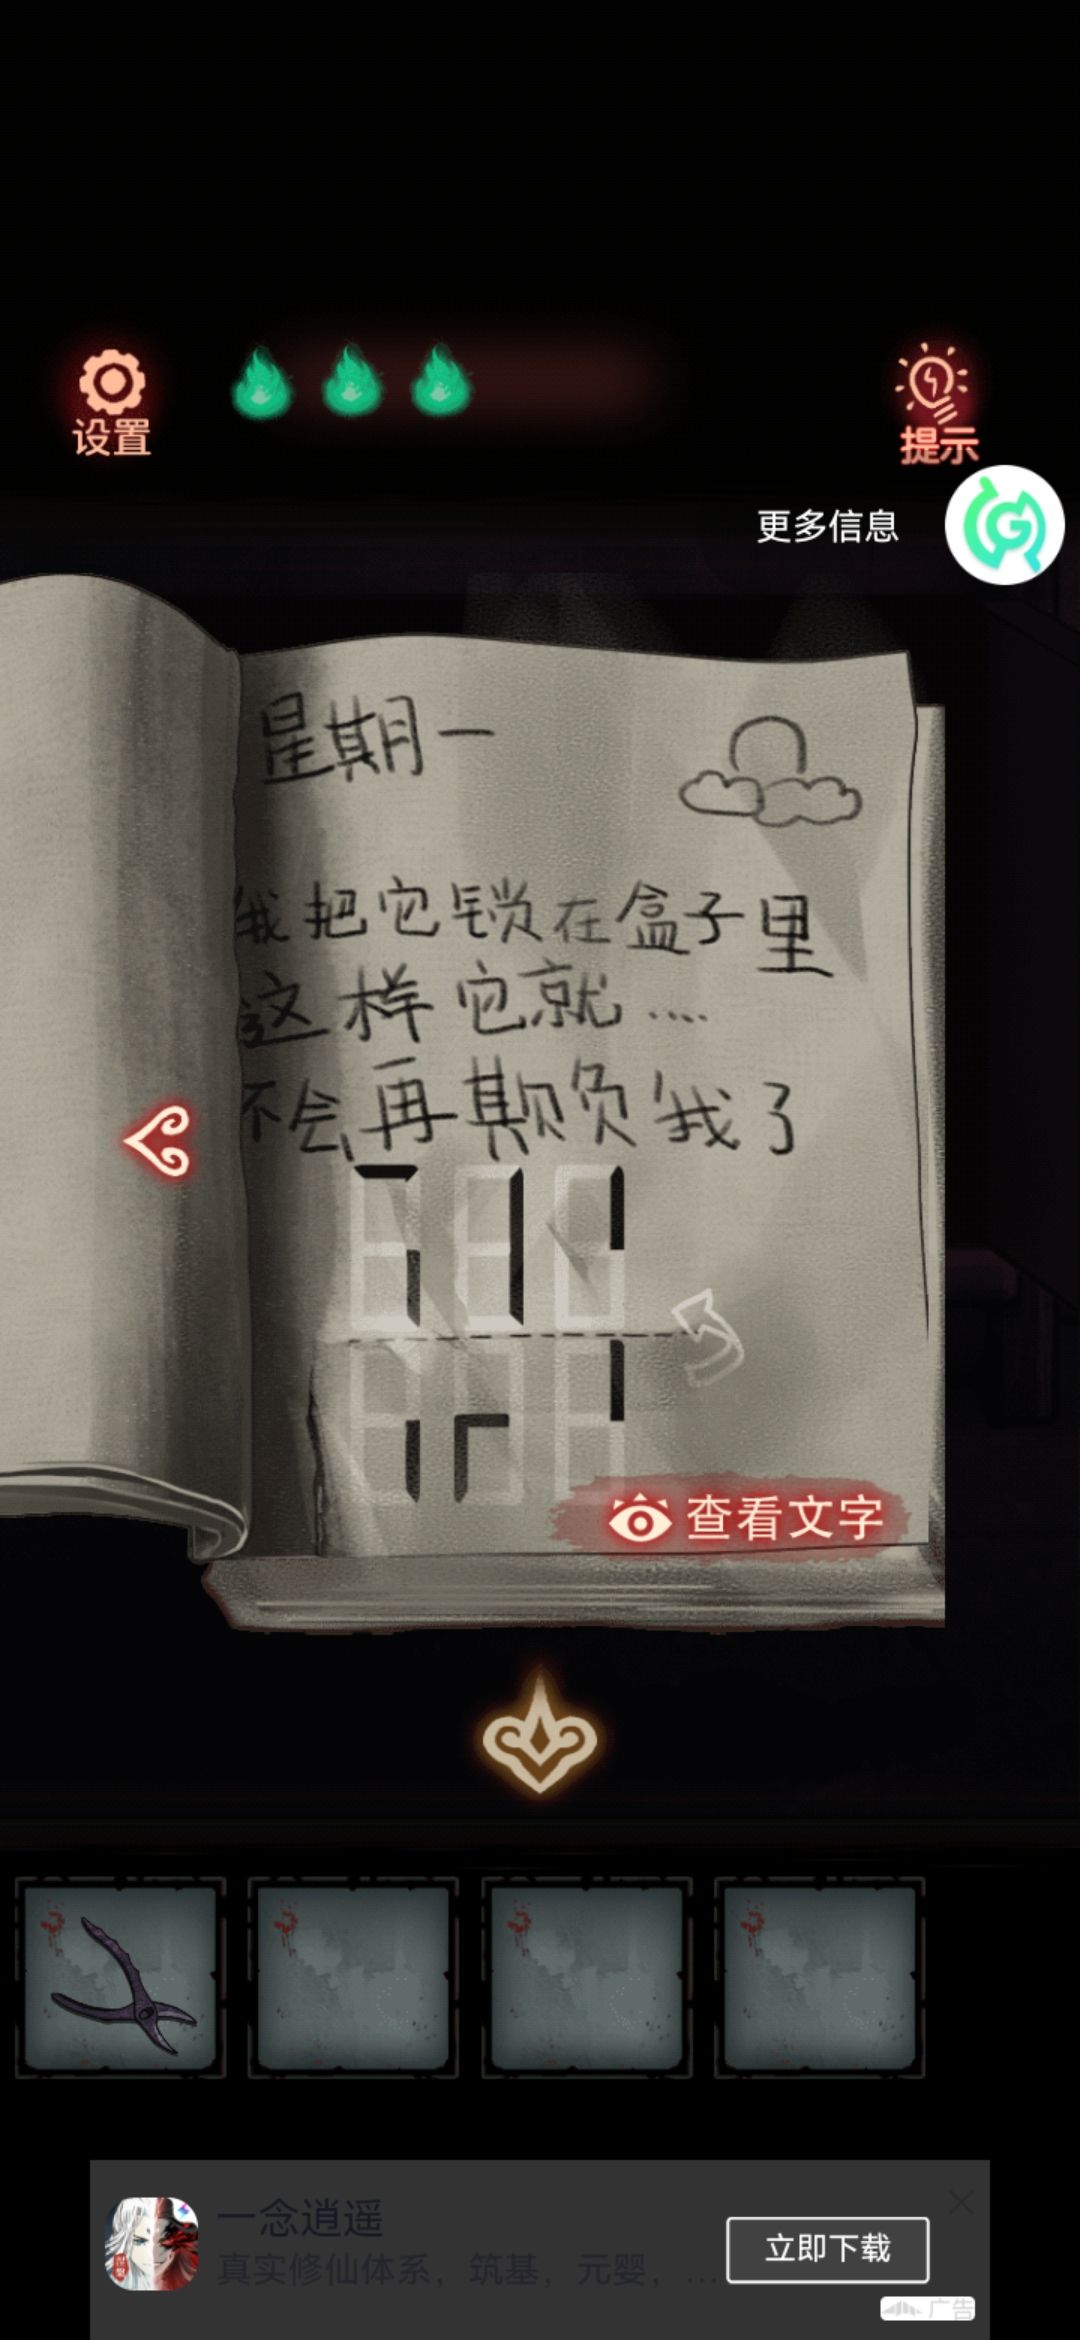 设置
提示
更多信息
星期一
我把它锁在盒子里
这样它就....
不会再欺负我了
查看文字
一念逍遥
真实修仙体系，筑基，元婴，...
立即下载
广告